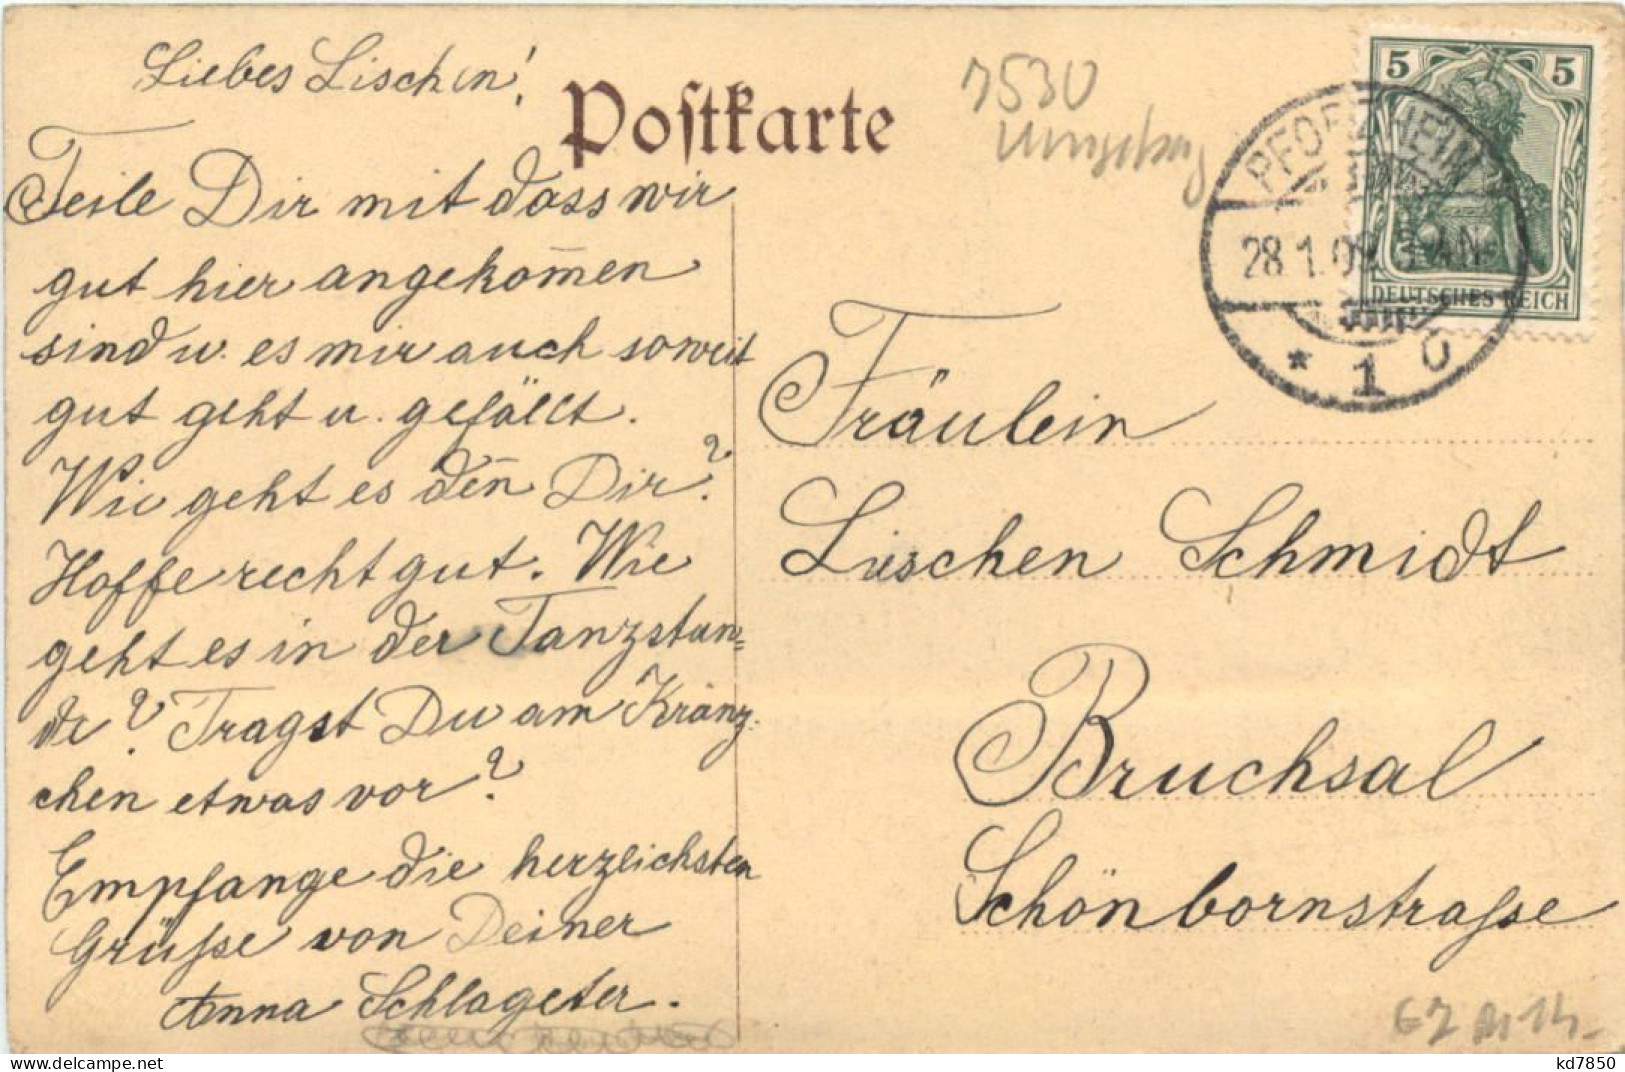 Liebes Lischen!
Postkarte
7530
Umgebung
5 5
PFORZHEIM
28.1.09.
DEUTSCHES REICH
* 1 c
Teile Dir mit dass wir
gut hier angekom̄en
sind u. es mir auch soweit
gut geht u. gefällt.
Wie geht es den̄ Dir?
Hoffe recht gut. Wie
geht es in der Tanzstun=
de? Tragst Du am Kränz-
chen etwas vor?
Empfange die herzlichsten
Grüße von Deiner
Anna Schlageter.
Fräulein
Lieschen Schmidt
Bruchsal
Schönbornstraße
kd7850